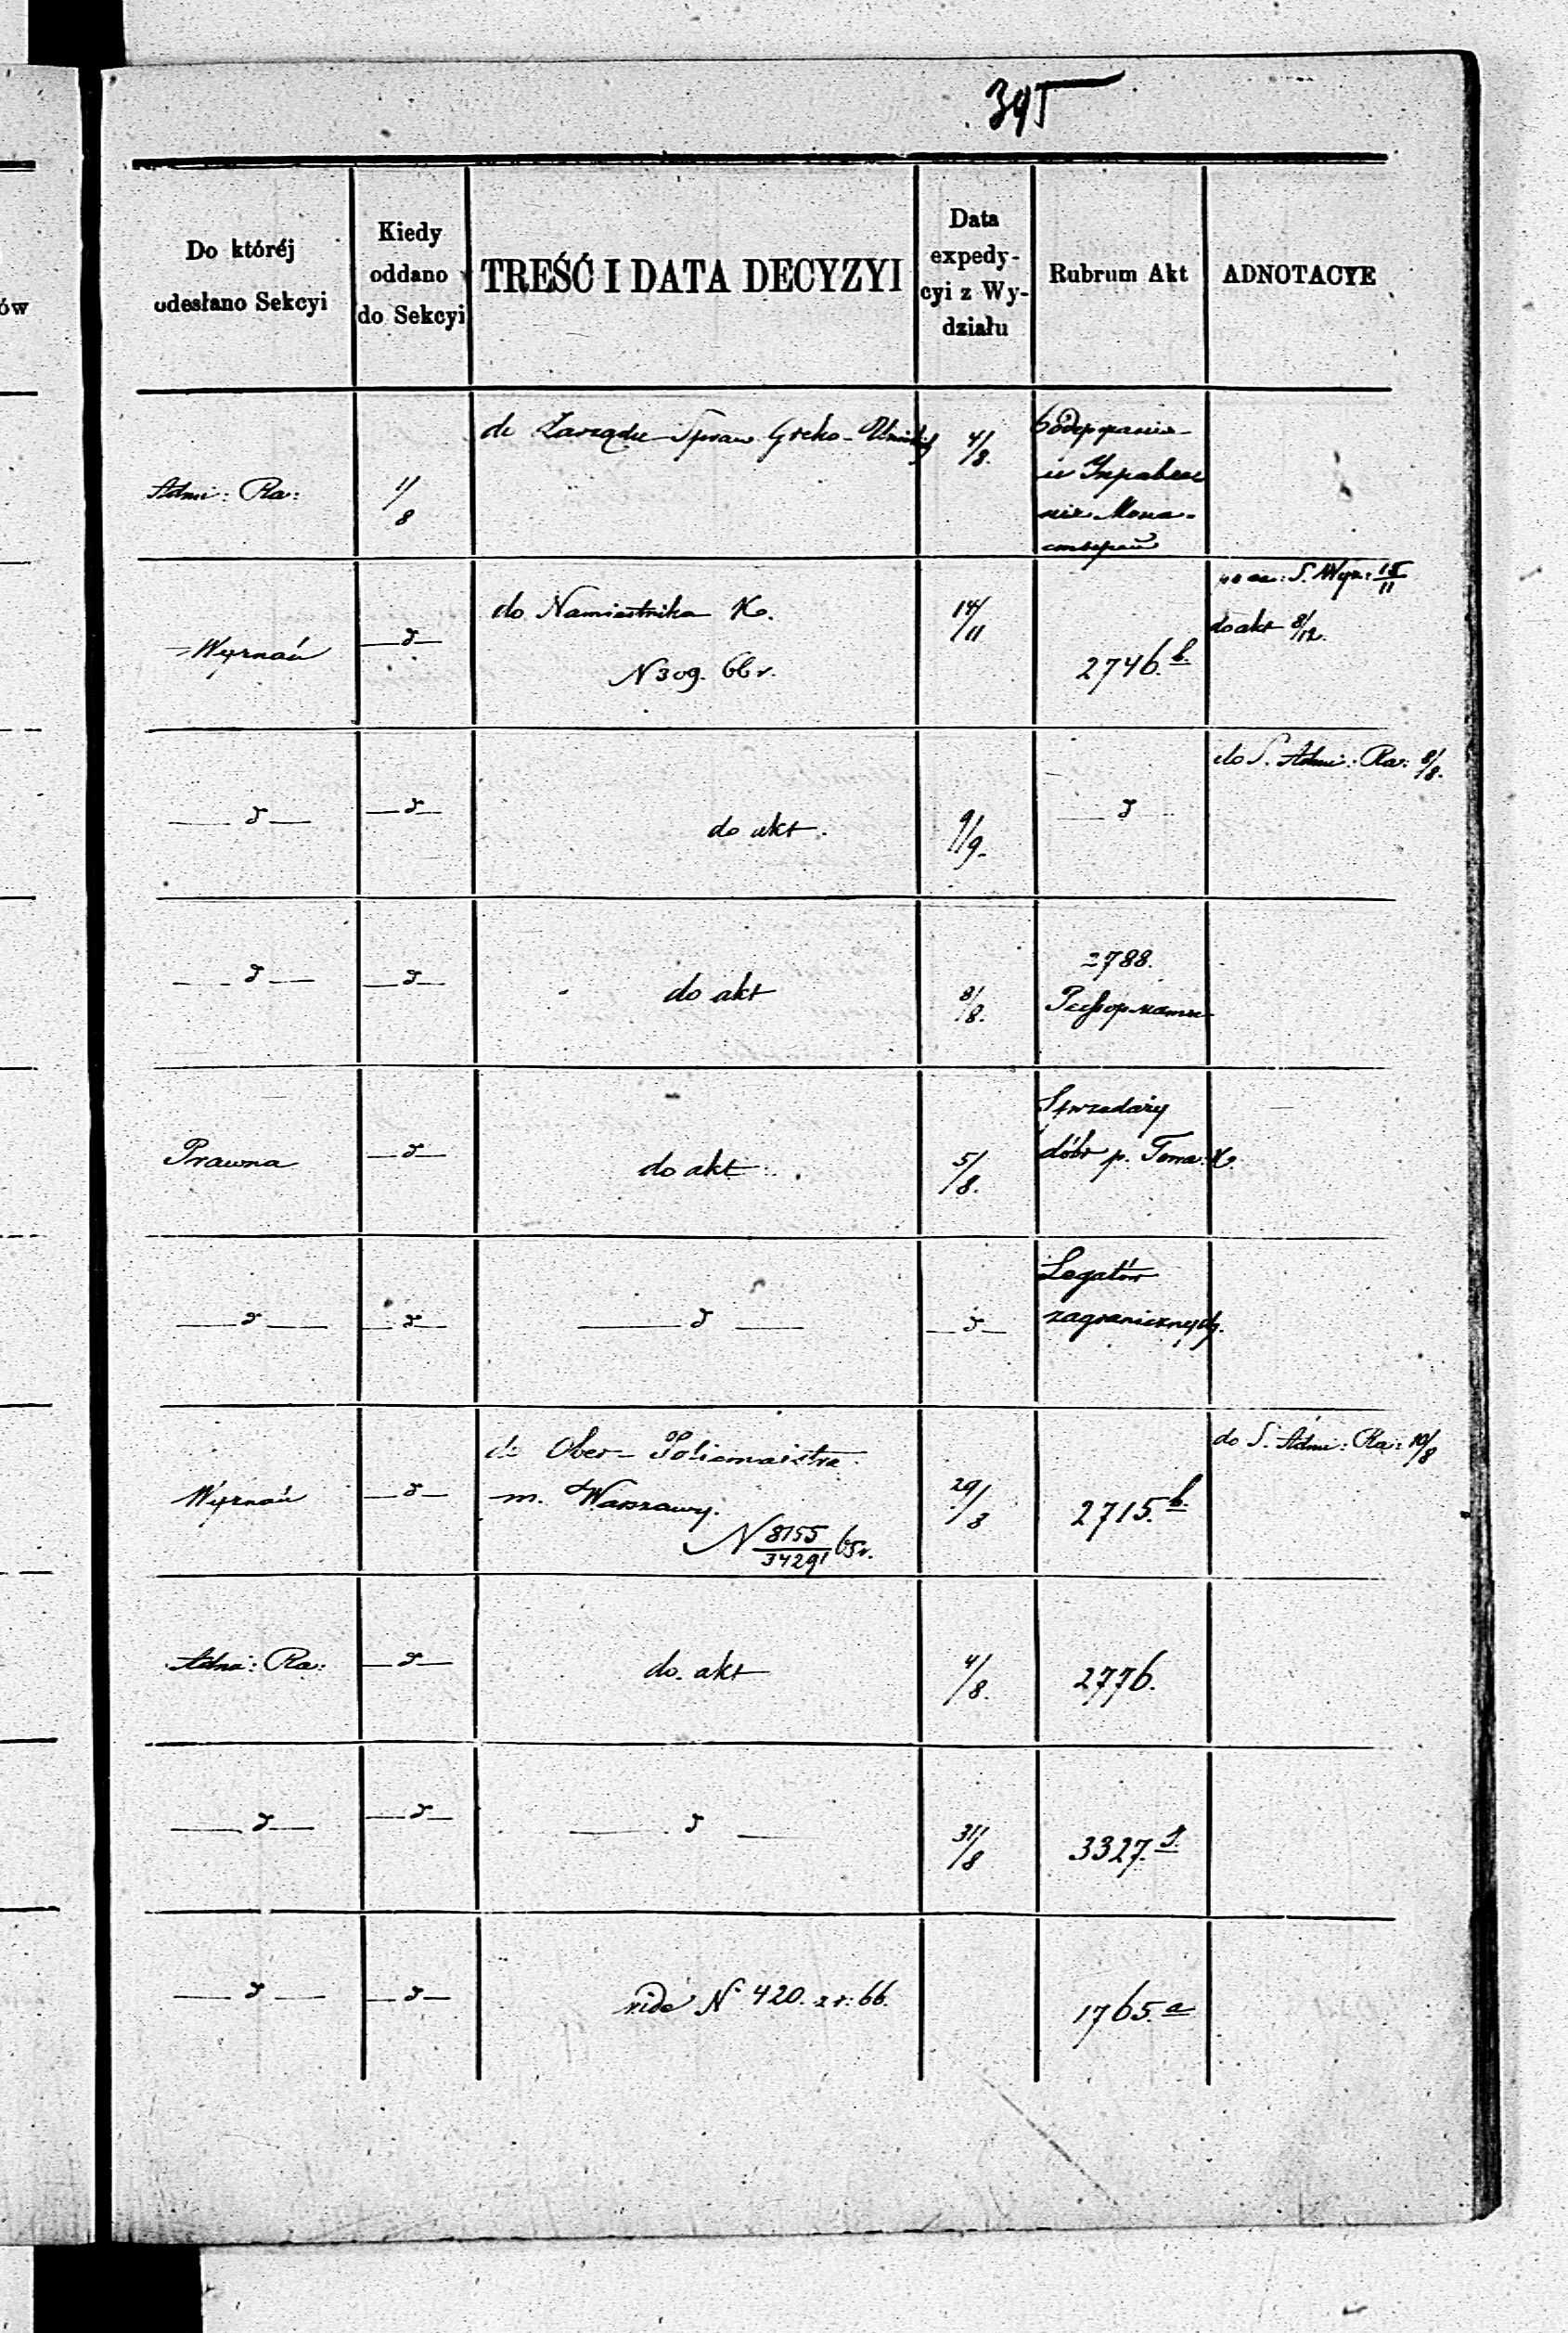 395
ów
Do któréj
odesłano Sekcyi
Kiedy
oddano
do Sekcyi
TREŚĆ I DATA DECYZYI
Data
expedy-
cyi z Wy-
działu
Rubrum Akt
ADNOTACYE
Admi: Ra:
1/8
do Zarządu Spraw Greko-Unickich
4/8.
Содержанiе
и Управле
нiе Мона-
стырей
Wyznań
—d—
do Namiestnika Kr.
N 309. 66 r.
14/11
2746.b.
S. Wyz: 15/11
do akt 8/12.
—d—
—d—
do akt.
9/9.
—d
do S. Admi: Ra: 8/8.
—d—
—d—
do akt
8/8.
2788.
Prawna
—d—
do akt
5/8.
Sprzedaży
dóbr p.
—d—
—d—
—d—
—d—
Legatów
zagranicznych.
Wyznań
—d—
do Ober-Policmaistra
m. Warszawy.
N 8155/34291 65 r.
29/8
2715.b.
do S. Admi: Ra: 10/8
Adm: Ra:
—d—
do akt
4/8.
2776.
—d—
—d—
—d—
31/8
3327.
—d—
—d—
vide N 420. z r: 66.
1765.a